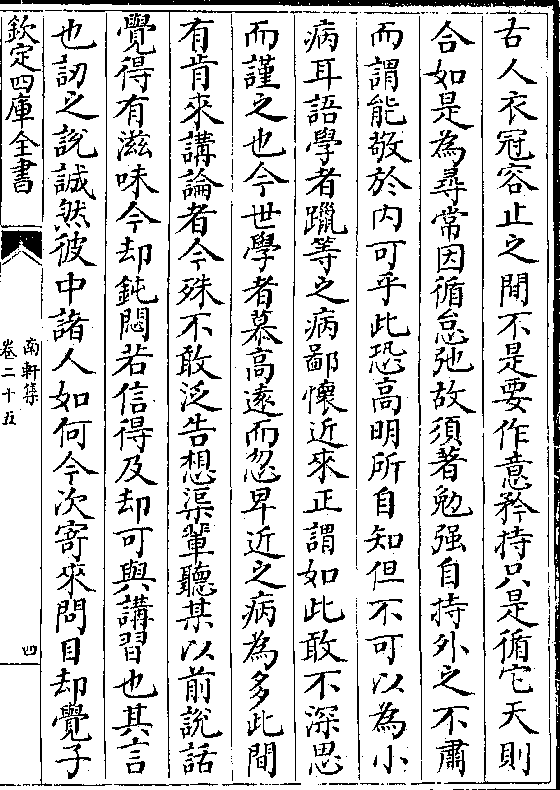 古人衣冠容止之間不是要作意矜持只是循它天則
合如是為尋常因循怠弛故須著勉强自持外之不肅
而謂能敬於内可乎此恐高明所自知但不可以為小
病耳語學者躐等之病鄙懷近來正謂如此敢不深思
而謹之也今世學者慕高遠而忽卑近之病為多此間
有肯來講論者今殊不敢泛告想渠輩聽某以前說話
覺得有滋味今却鈍悶若信得及却可與講習也其言
也訒之說誠然彼中諸人如何今次寄來問目却覺子
欽定四庫全書
南軒集
卷二十五
四